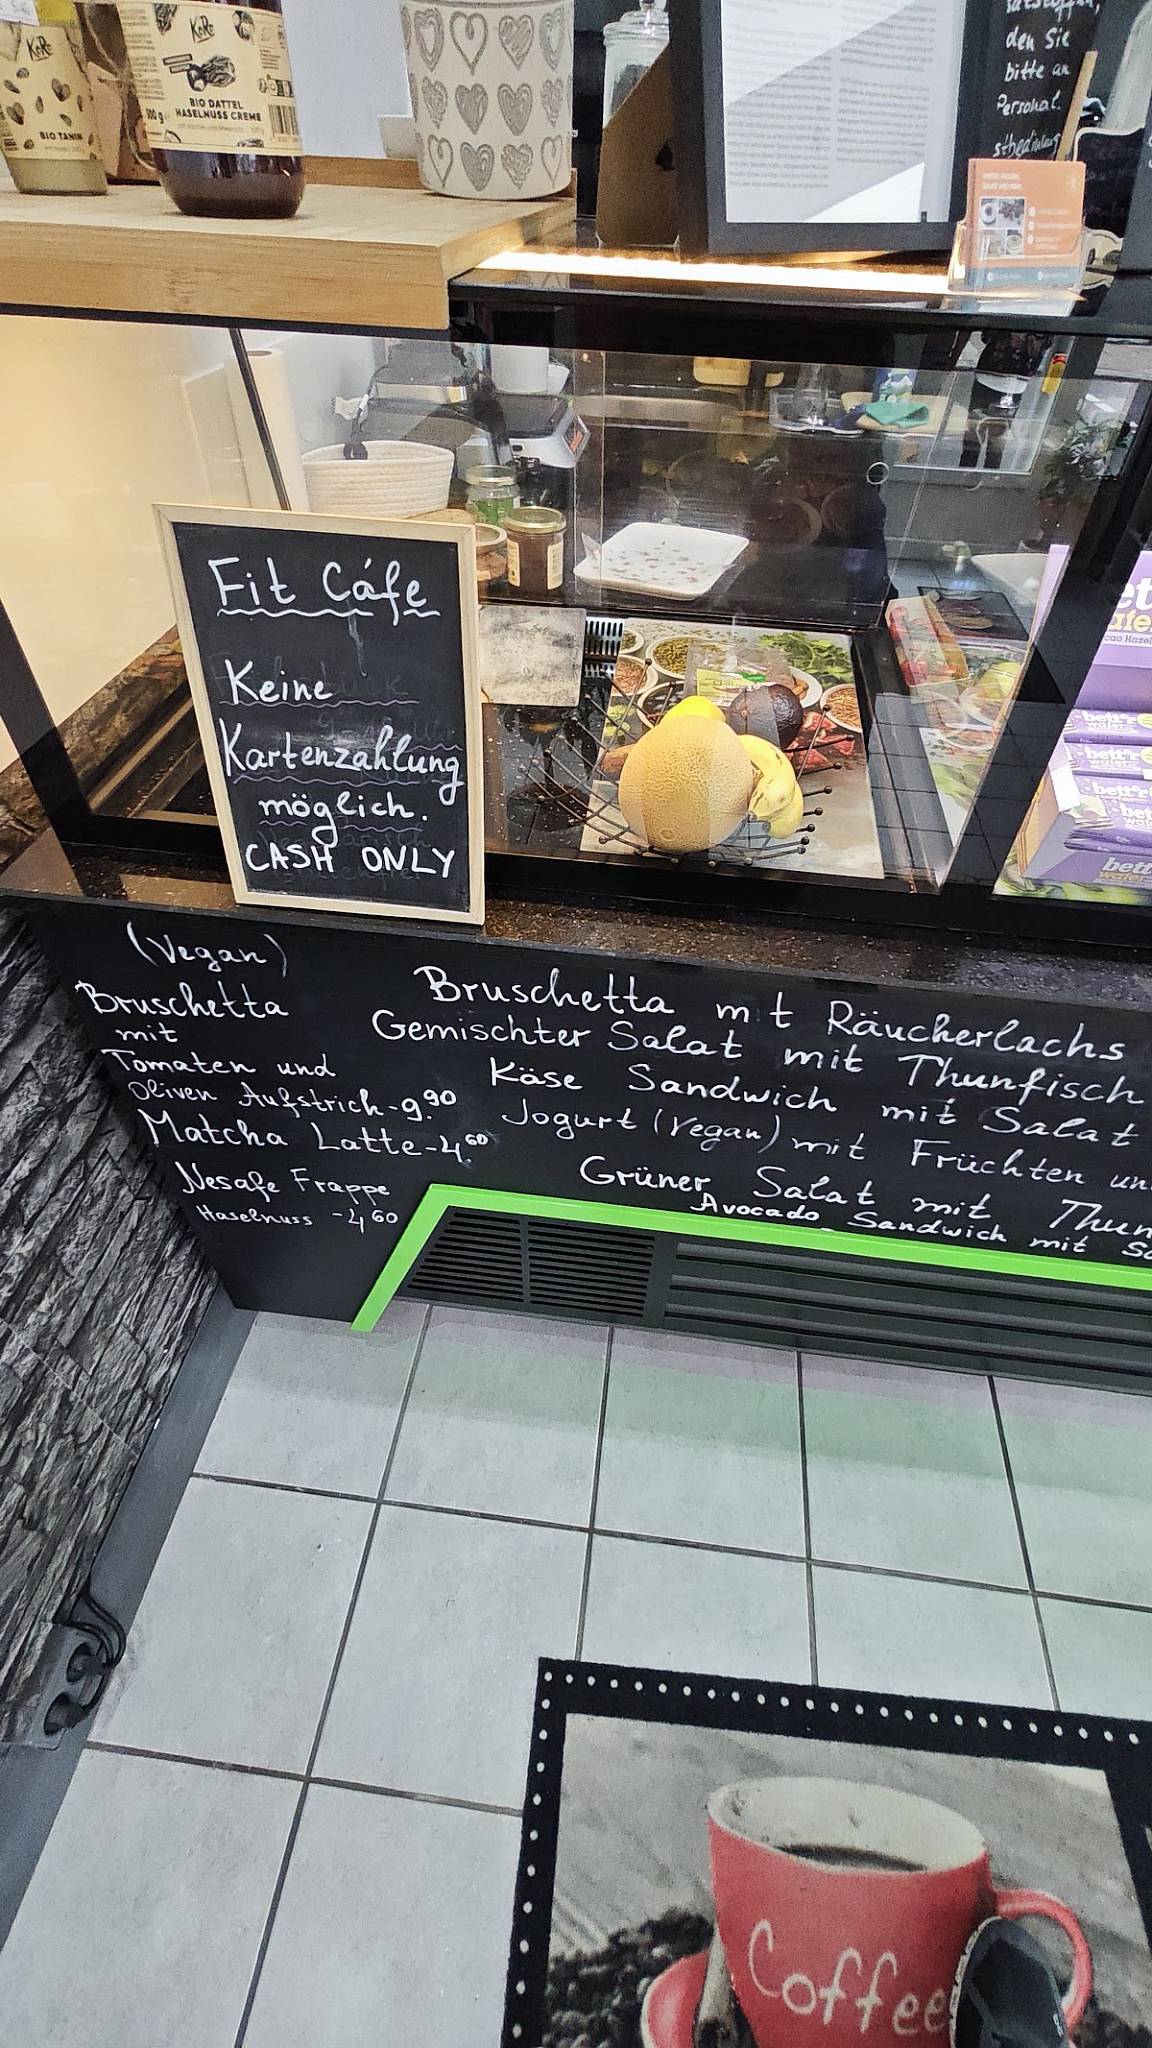 KoRo
BIO TAHIN
KoRo
BIO DATTEL
HASELNUSS CREME
den Sie
bitte an
Personal.
Fit Cáfe
Keine
Kartenzahlung
möglich.
CASH ONLY
bett'r
wafer
bett'r
wafer
bett'r
(Vegan)
Bruschetta
mit
Tomaten und
Oliven Aufstrich-9.90
Matcha Latte-4.60
Nesafe Frappe
Haselnuss -4,60
Bruschetta m t Räucherlachs
Gemischter Salat mit Thunfisch
Käse Sandwich mit Salat
Jogurt (Vegan) mit Früchten un
Grüner Salat mit Thun
Avocado Sandwich mit Sa
Coffee